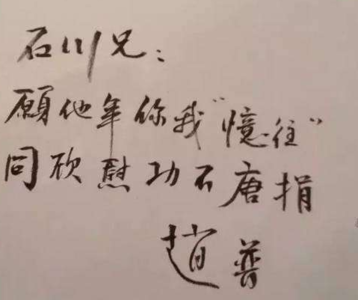 石川兄：
願他年你我“憶往”
同欣慰功不唐捐
趙普